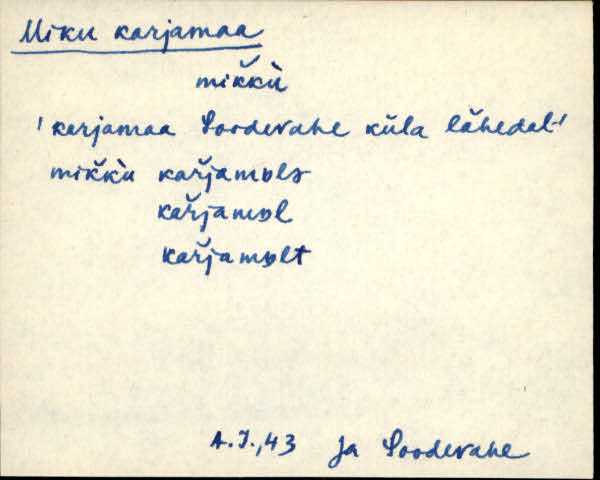 Miku karjamaa
mik̆k̀u
'karjamaa Soodevahe küla lähedal'
mik̆k̀u kar̆jamɒlɜ
kar̆jamɒl
kar̆jamɒlt
A.J.,43 Jä Soodevahe